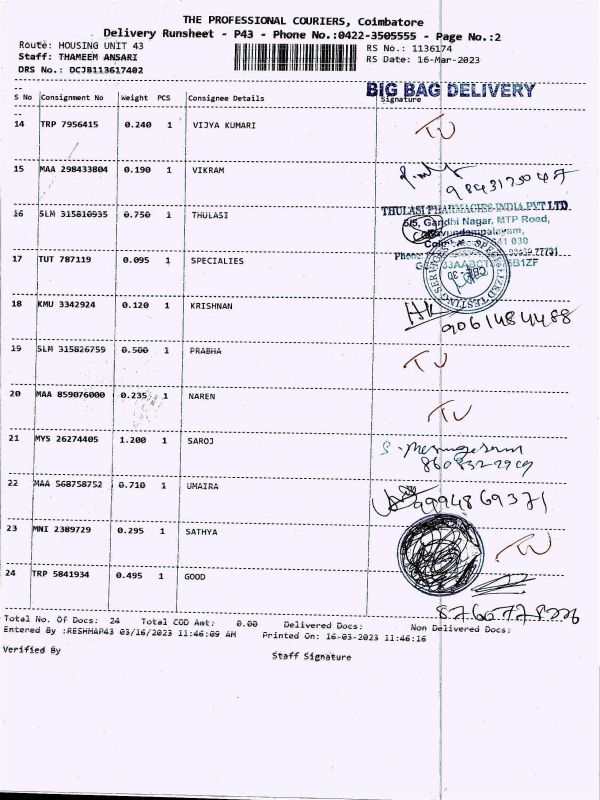 THE PROFESSIONAL COURIERS, Coimbatore
Delivery Runsheet - P43 - Phone No.:0422-3505555 - Page No.:2
Route: HOUSING UNIT 43
RS No.: 1136174
Staff: THAMEEM ANSARI
RS Date: 16-Mar-2023
DRS No.: DCJB113617402
BIG BAG DELIVERY
S No Consignment No Weight PCS Consignee Details Signature
14 TRP 7956415 0.240 1 VIJYA KUMARI
15 MAA 298433804 0.190 1 VIKRAM
16 SLM 315810935 0.750 1 THULASI
THULASI PHARMACIES INDIA PVT LTD
5/5, Gandhi Nagar, MTP Road,
17 TUT 787119 0.095 1 SPECIALIES
18 KMU 3342924 0.120 1 KRISHNAN
9061484488
19 SLM 315826759 0.500 1 PRABHA
20 MAA 859076000 0.235 1 NAREN
21 MYS 26274405 1.200 1 SAROJ
22 MAA 568758752 0.710 1 UMAIRA
9994869371
23 MNI 2389729 0.295 1 SATHYA
24 TRP 5841934 0.495 1 GOOD
Total No. Of Docs: 24 Total COD Amt: 0.00 Delivered Docs: Non Delivered Docs:
Entered By :RESHMAP43 03/16/2023 11:46:09 AM Printed On: 16-03-2023 11:46:16
Verified By
Staff Signature